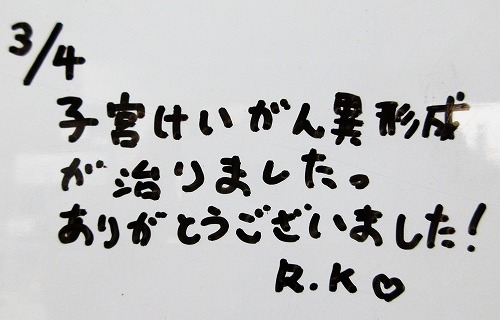 3/4
子宮けいがん異形成
が治りました。
ありがとうございました!
R.K♡